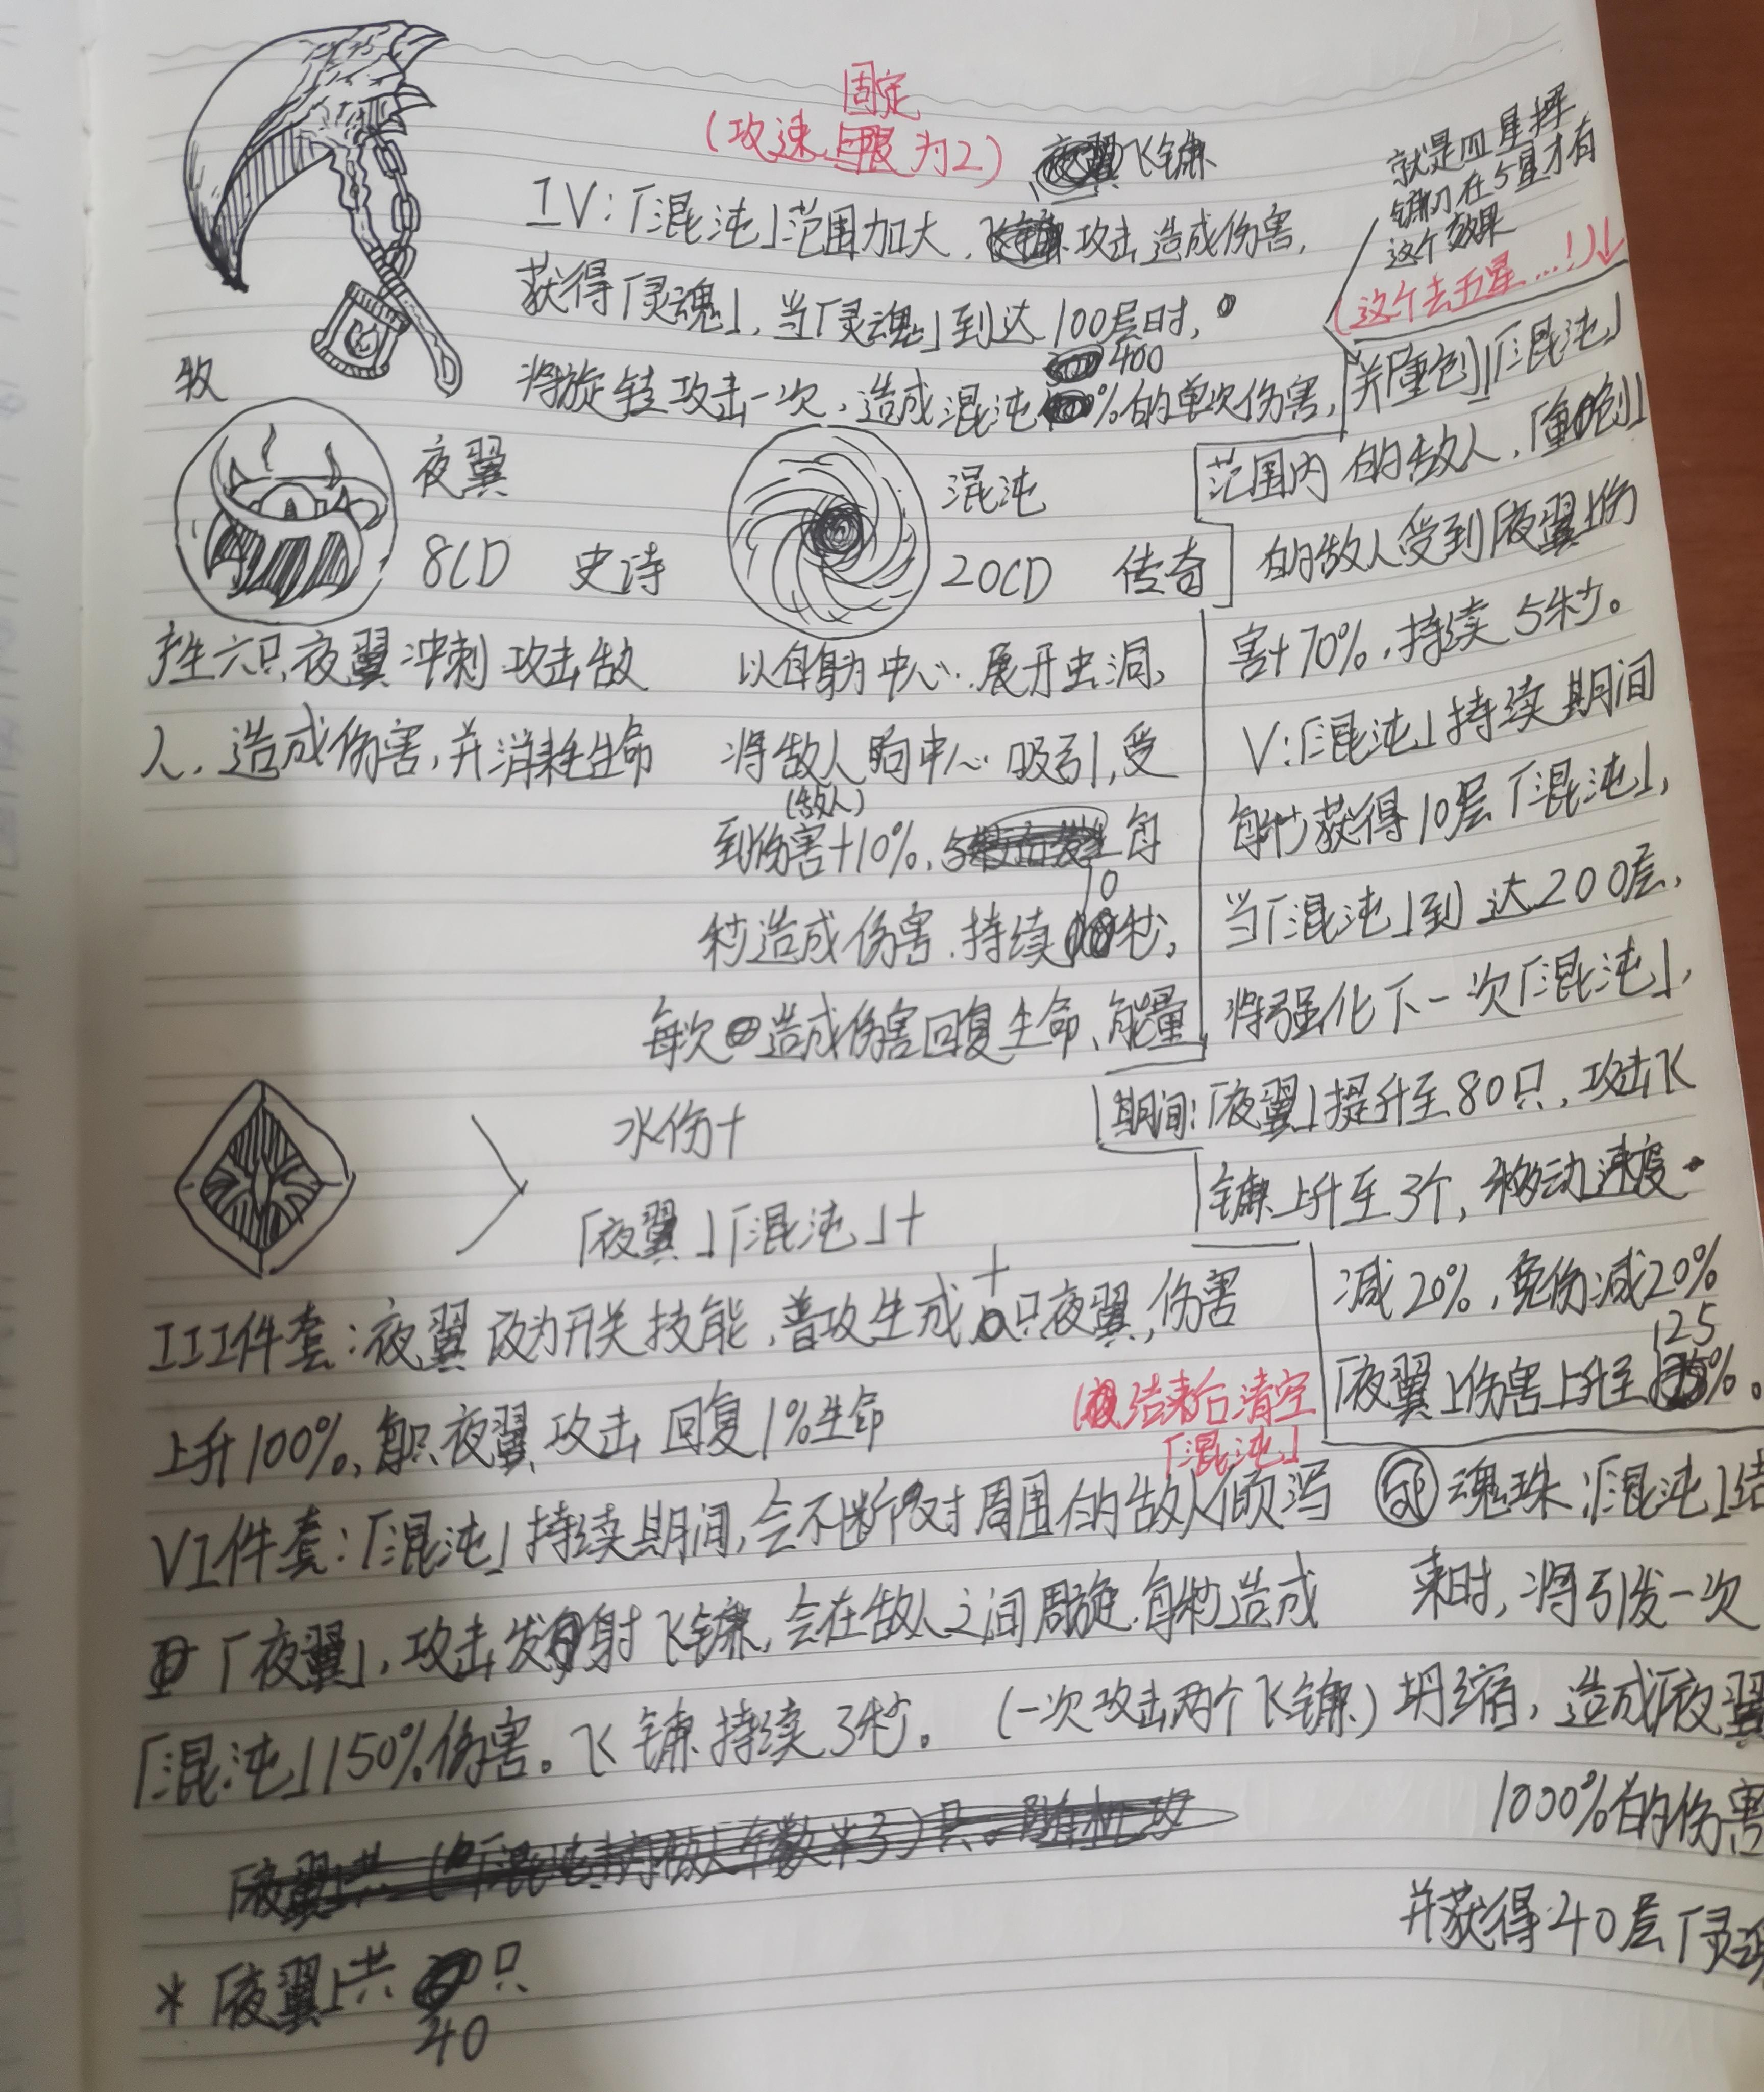 固定
(攻速上限为2)
飞镰
IV:「混沌」范围加大,攻击造成伤害,
获得「灵魂」,当「灵魂」到达100层时,
400
将旋转攻击一次,造成混沌%的单次伤害,
就是四星挥
镰刀在5星才有
这个效果
(这个去五星...!)↓
并「重创」「混沌」
范围内的敌人,「重创」
的敌人受到「夜翼」伤
害+70%,持续5秒。
V:「混沌」持续期间
每秒获得10层「混沌」,
当「混沌」到达200层,
将强化下一次「混沌」,
期间:「夜翼」提升至80只,攻击飞
镰上升至3个,移动速度
减20%,免伤减20%
125
「夜翼」伤害上升至%。
牧
夜翼
8CD 史诗
产生六只夜翼冲刺攻击敌
人,造成伤害,并消耗生命
混沌
20CD 传奇
以自身为中心,展开虫洞,
将敌人向中心吸引,受
(敌人)
到伤害+10%,每
10
秒造成伤害,持续秒,
每次造成伤害回复生命、能量
水伤+
「夜翼」「混沌」+
III件套:夜翼改为开关技能,普攻生成只夜翼,伤害
上升100%,每只夜翼攻击回复1%生命
(结束后清空
「混沌」
VI件套:「混沌」持续期间,会不断对周围的敌人倾泻
「夜翼」,攻击发射飞镰,会在敌人之间周旋,每秒造成
「混沌」150%伤害。飞镰持续3秒。(一次攻击两个飞镰)
魂珠:「混沌」结
束时,将引发一次
坍缩,造成「夜翼
1000%的伤害
并获得40层「灵魂
*「夜翼」共只
40